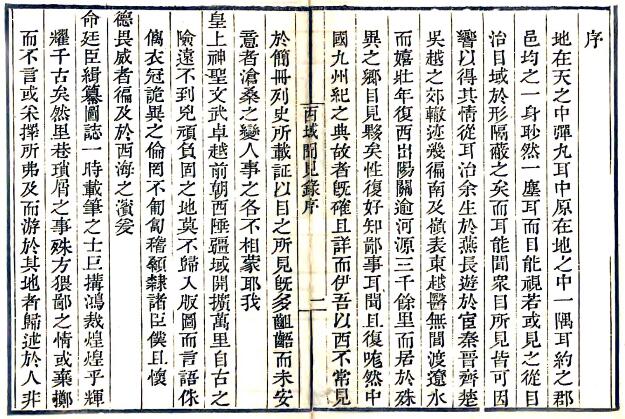 序
地在天之中彈丸耳中原在地之中一隅耳約之郡
邑均之一身眇然一塵耳而目能視若或見之從目
治目域於形隔蔽之矣而耳能聞衆目所見皆可因
響以得其情從耳治余生於燕長遊於宦秦晉齊楚
吳越之郊轍迹幾徧南及嶺表東越醫無閭渡遼水
而嬉壯年復西出陽關逾河源三千餘里而居於殊
異之鄉目見夥矣性復好知鄙事耳聞且復唵然中
國九州紀之典故者旣確且詳而伊吾以西不常見
西域聞見錄序
一
於簡冊列史所載証以目之所見旣多齟齬而未安
意者滄桑之變人事之各不相蒙耶我
皇上神聖文武卓越前朝西陲疆域開擴萬里自古之
險遠不到兇頑負固之地莫不歸入版圖而言語侏
儷衣冠詭異之倫罔不匍匐稽顙隸諸臣僕且懷
德畏威者徧及於西海之濱爰
命廷臣緝纂圖誌一時載筆之士巨搆鴻裁煌煌乎輝
耀千古矣然里巷瑣屑之事殊方猥鄙之情或棄擲
而不言或采擇所弗及而游於其地者歸述於人非